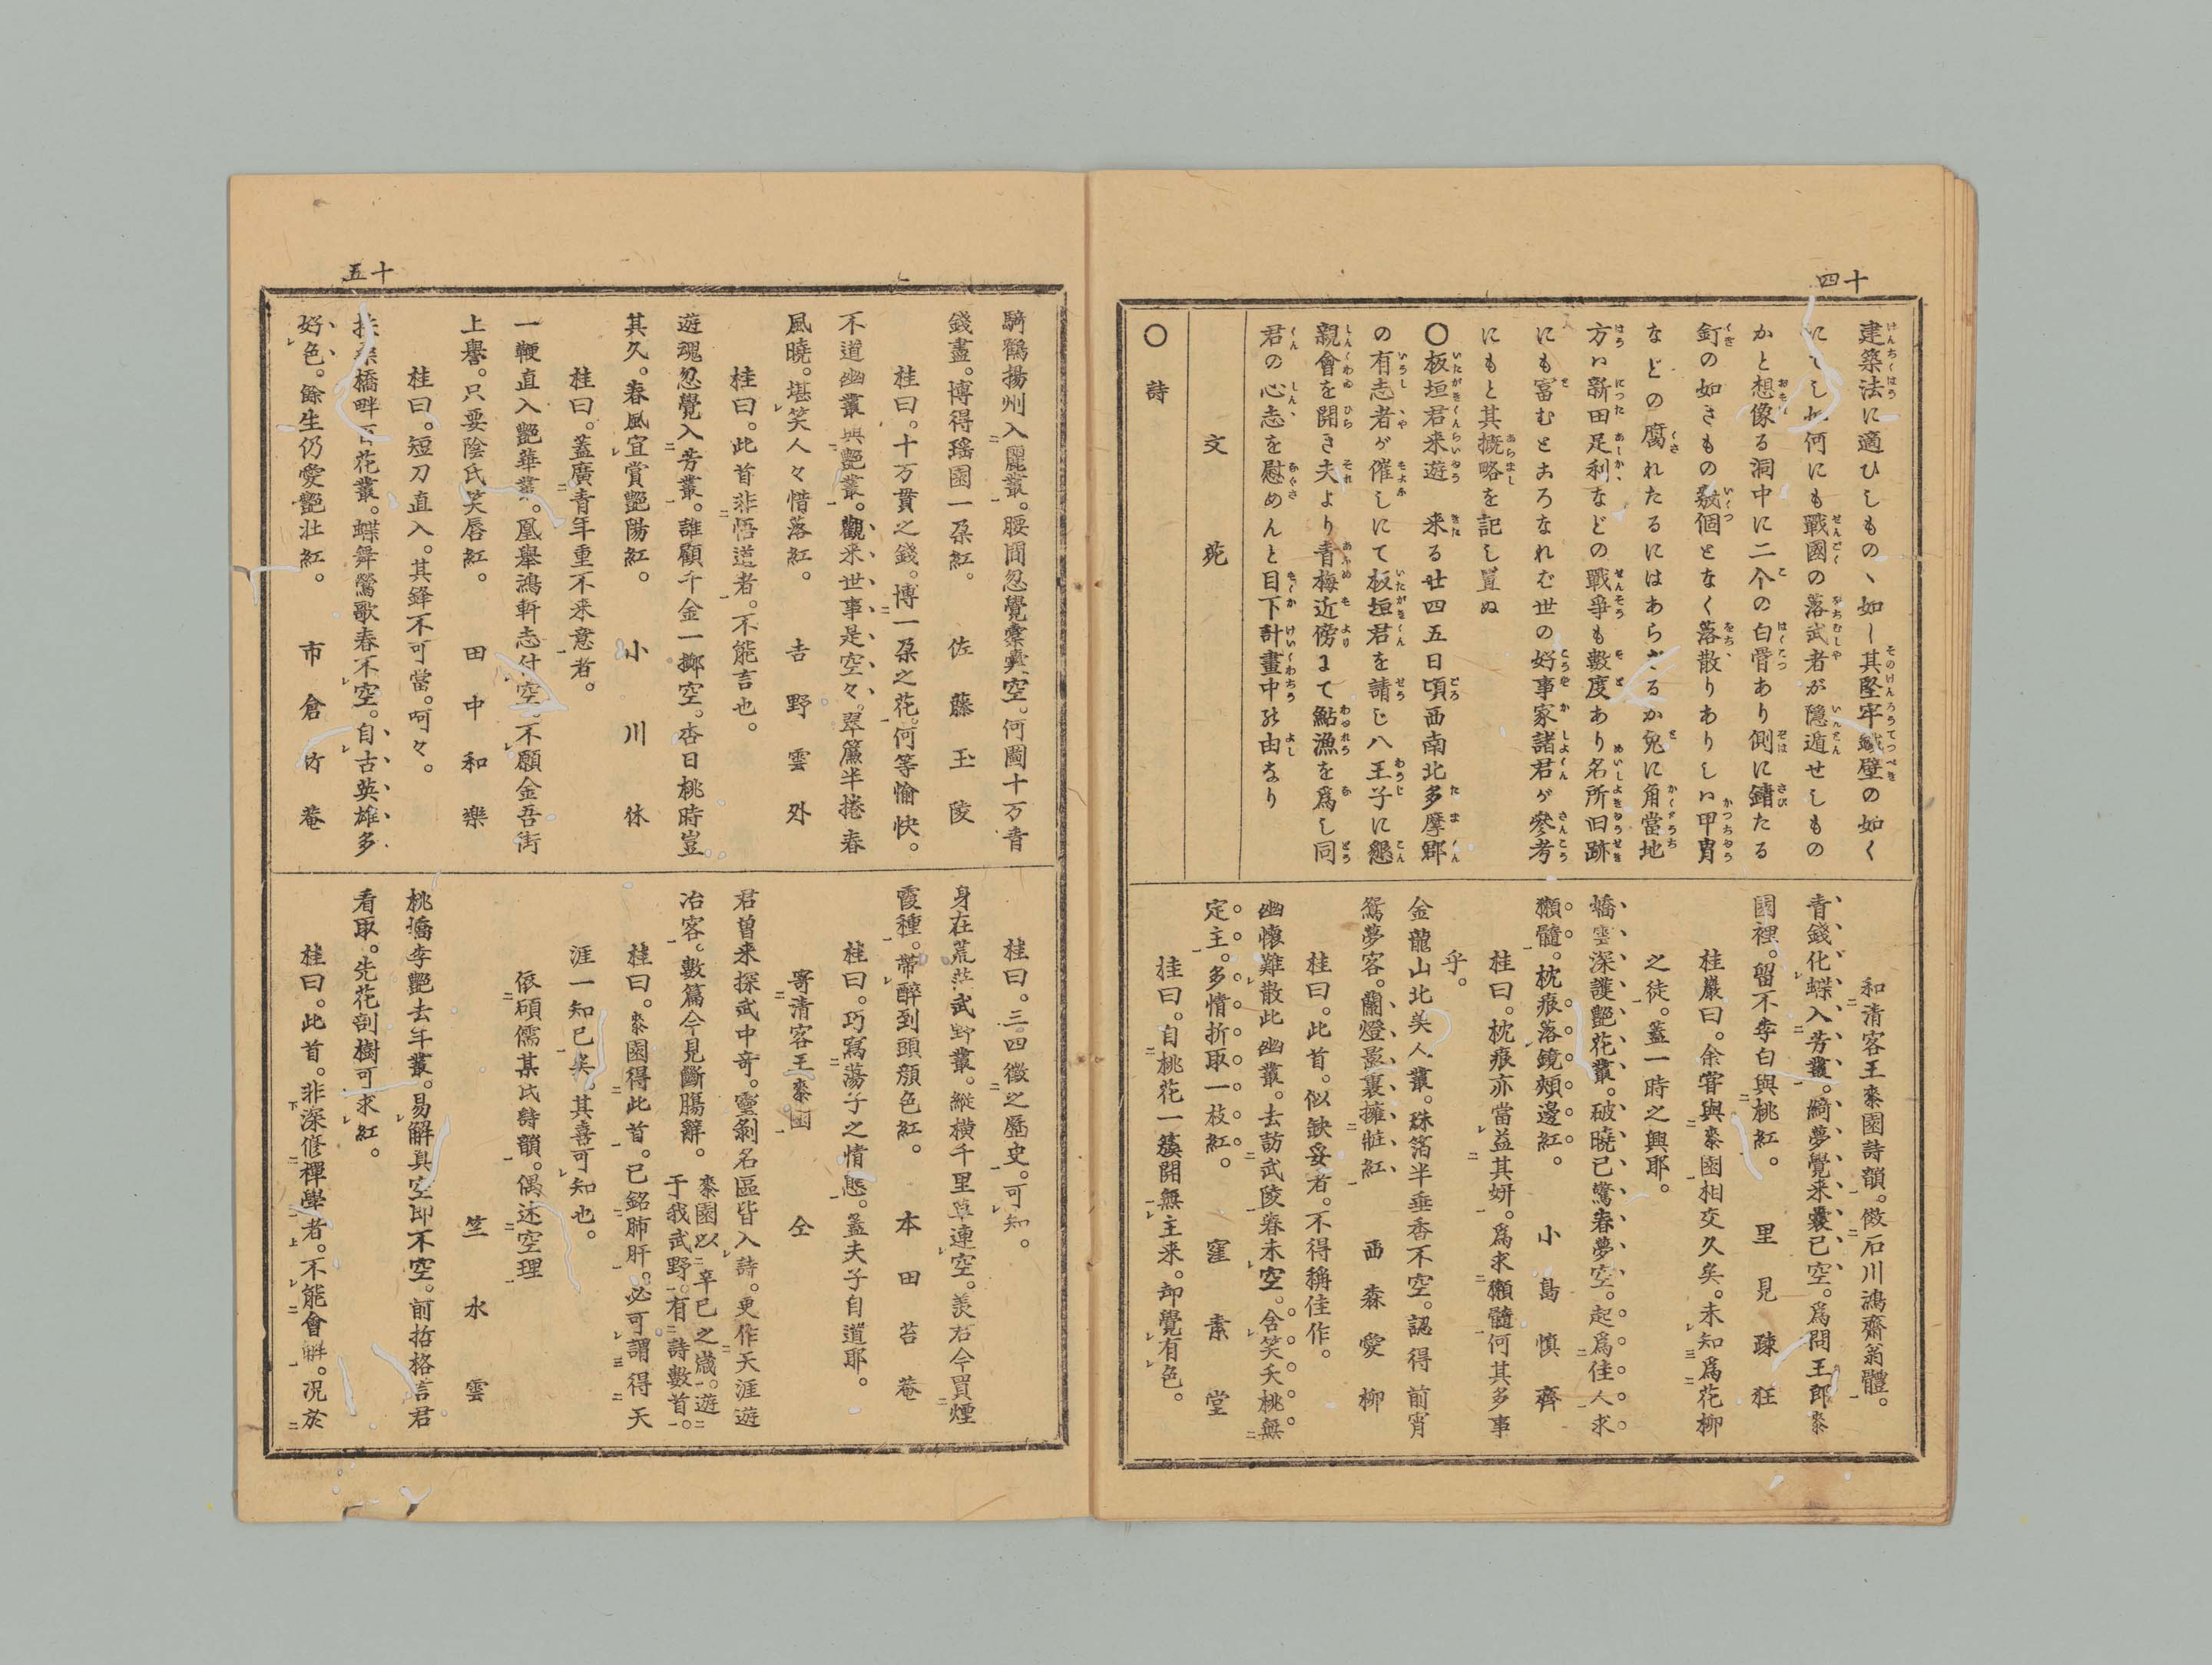 十四
建築法に適ひしものヽ如し其堅牢鐵壁の如く
にてし如何にも戰國の落武者が隱遁せしもの
かと想像る洞中に二个の白骨あり側に鏽たる
釘の如きもの數個となく落散りありしハ甲冑
などの腐れたるにはあらざるか兎に角當地
方ハ新田足利などの戰爭も數度あり名所旧跡
にも富むところなれむ世の好事家諸君が參考
にもと其概略を記し置ぬ
〇板垣君来遊 来る廿四五日頃西南北多摩郡
の有志者が催しにて板垣君を請じ八王子に懇
親會を開き夫より青梅近傍まで鮎漁を爲し同
君の心志を慰めんと目下計畫中の由なり
文苑
〇詩
和清客王桼園詩韻。傚石川鴻齋翁體。
青錢化蝶入芳叢。綺夢覺来嚢已空。爲問王郎桼
園裡。留不李白與桃紅。 里見疎狂
桂巖曰。余甞與桼園相交久矣。未知爲花柳
之徒。蓋一時之興耶。
嬌雲深護艷花叢。破曉已驚春夢空。起爲佳人求
獺髓。枕痕落鏡頰邊紅。 小島愼齊
桂曰。枕痕亦當益其妍。爲求獺髓何其多事
乎。
金龍山北美人叢。珠箔半垂香不空。認得前宵
鴛夢客。蘭燈影裏擁粧紅 西森愛柳
桂曰。此首。似缺妥者。不得稱佳作。
幽懷難散此幽叢。去訪武陵春未空。含笑夭桃無
定主。多情折取一枝紅。 窪素堂
桂曰。自桃花一簇開無主来。却覺有色。
十五
騎鶴揚州入麗叢。腰間忽覺槖嚢空。何圖十万青
錢盡。博得瑤園一朶紅。 佐藤玉陵
桂曰。十万貫之錢。博一朶之花。何等愉快。
不道幽叢與艷叢。觀来世事是空々。翠簾半捲春
風曉。堪笑人々惜落紅。 吉野雲外
桂曰。此首非悟道者。不能言也。
遊魂忽覺入芳叢。誰顧千金一擲空。杏日桃時豈
其久。春風宜賞艷陽紅。 小川休
桂曰。蓋廣青年重不来意者。
一鞭直入艷華叢。凰擧鴻軒志付空。不願金吾街
上譽。只要陰氏笑唇紅。 田中和樂
桂曰。短刀直入。其鋒不可當。呵々。
橋畔百花叢。蝶舞鶯歌春不空。自古英雄多
好色。餘生仍愛艷壯紅。 市倉竹菴
桂曰。三四徵之歷史。可知。
身在荒茫武野叢。縱横千里草連空。羨君今買煙
霞種。帶醉到頭顏色紅。 本田苔菴
桂曰。巧寫蕩子之情態。蓋夫子自道耶。
寄清客王桼園 仝
君曽来探武中竒。靈剎名區皆入詩。更作天涯遊
冶客。數篇今見斷膓辭。 桼園以辛巳之歳。遊
于我武野。有詩數首。
桂曰。桼園得此首。已銘肺肝。必可謂得天
涯一知已矣。其喜可知也。
依碩儒某氏詩韻。偶述空理
竺水雲
桃嬌李艷去年叢。易解真空即不空。前哲格言君
看取。先花剖樹可求紅。
桂曰。此首。非深修禪學者。不能會解。况於